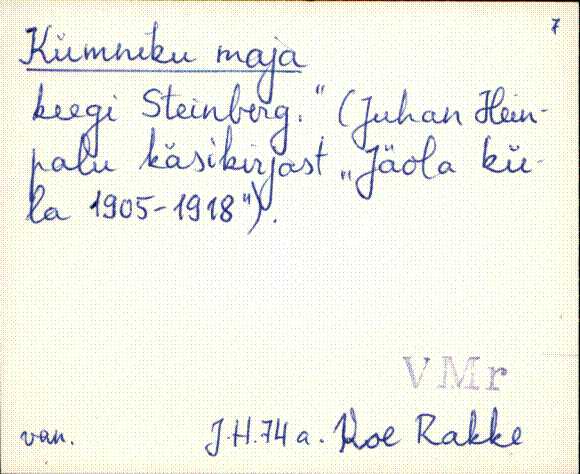 7
Kümniku maja
keegi Steinberg." (Juhan Hein-
palu käsikirjast „Jäola kü-
la 1905-1918").
VMr
van. J.H.74 a. Koe Rakke